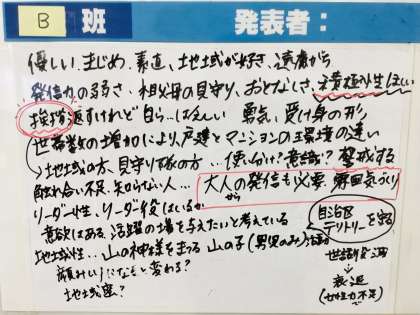 B 班 発表者:
優しい、まじめ、素直、地域が好き、遠慮がち
発信力の弱さ、祖父母の見守り、おとなしさ、積極性ほしい
挨拶返すけれど自ら…ほしい 勇気、受け身の形
世帯数の増加により、戸建とマンションの環境の違い
→地域の方、見守り隊の方…使い分け?意識?警戒する
触れ合い不足、知らない人… 大人の発信も必要 雰囲気づくりから
リーダー性、リーダー役はいるか
意欲はある、活躍の場を与えたいと考えている
自治区
テリトリーを守る
地域性… 山の神様をまつる 山の子(男児のみ)
世話役
顔みしりになると変わる?
衰退
地域愛?
(女性力不足で)